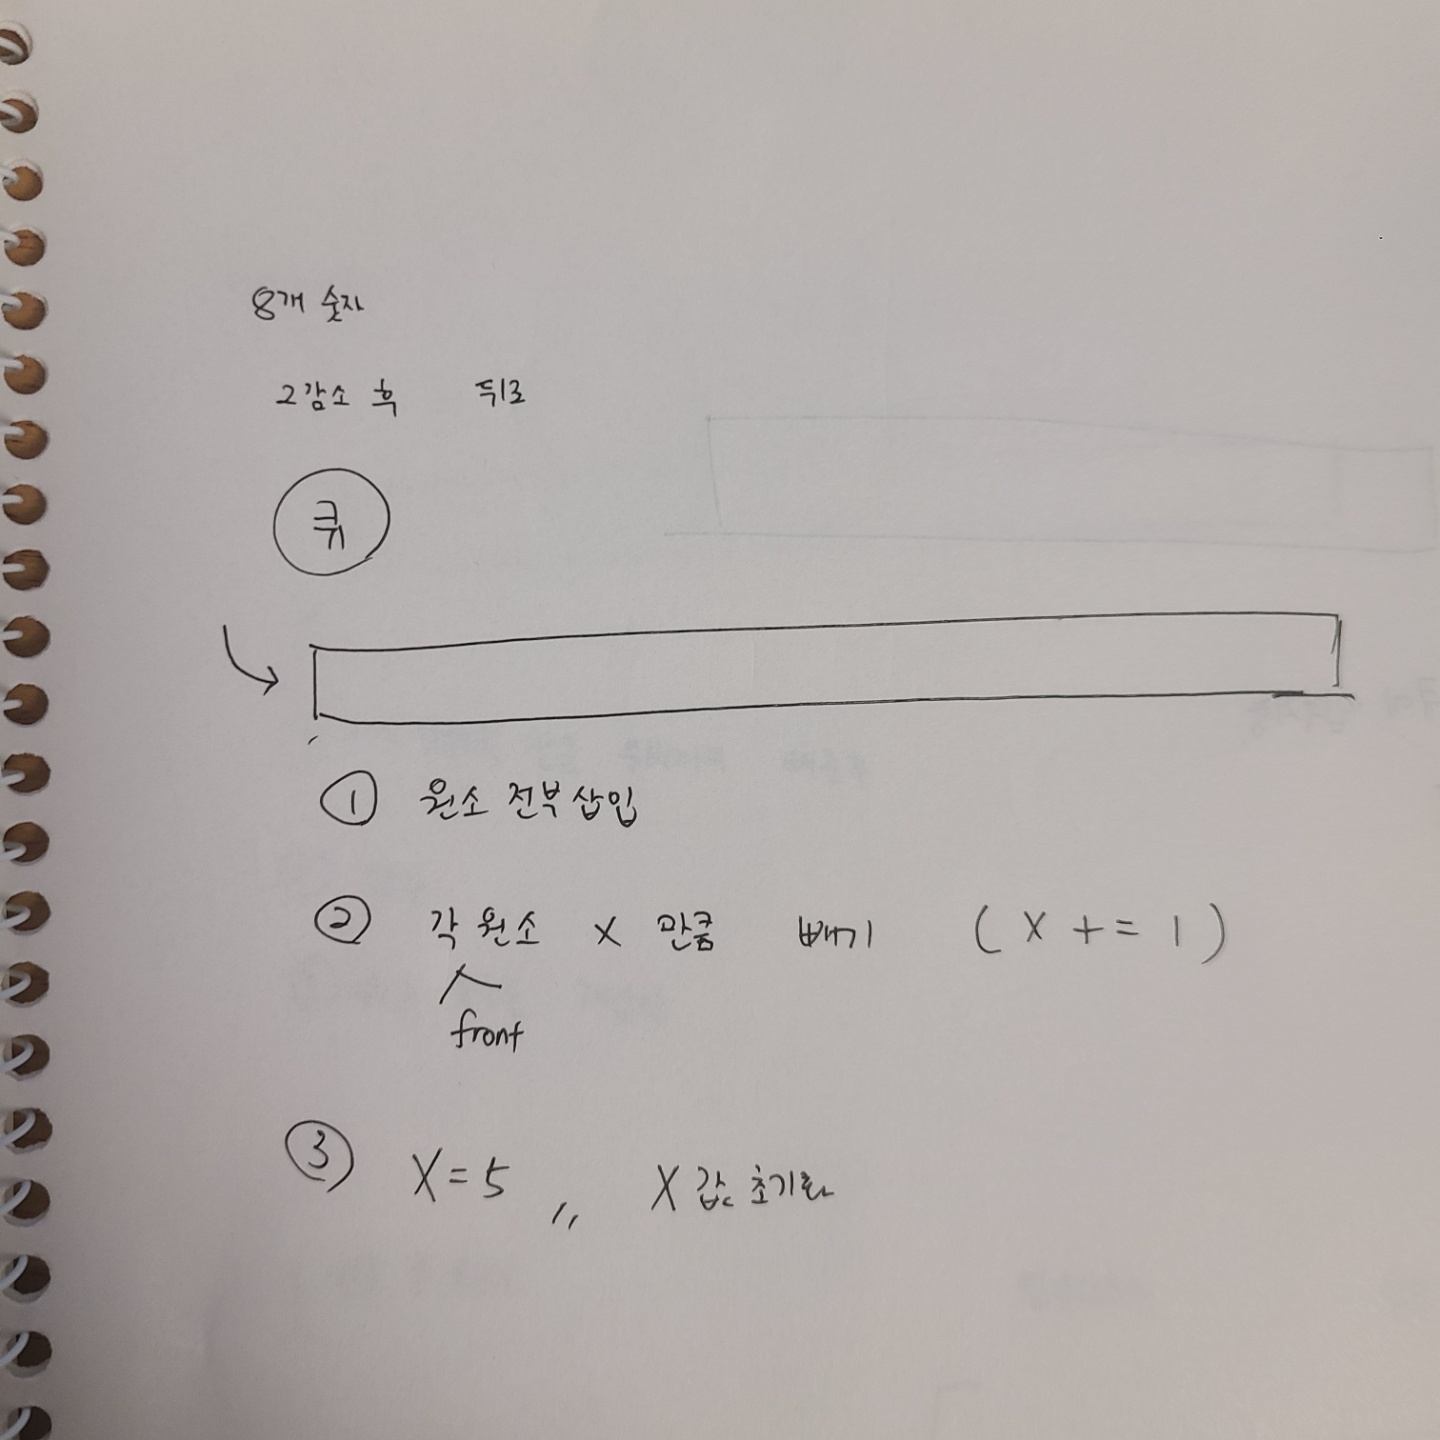 8개 숫자
2감소 후 뒤로
큐
① 원소 전부 삽입
② 각 원소 X 만큼 빼기 (X += 1)
front
③ X = 5 ,, X 값 초기화